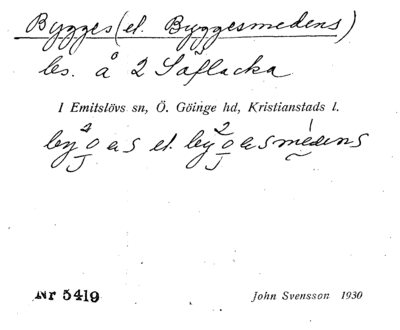 Bygges (el. Byggesmedens)
bes. å 2 Saflacka
I Emitslövs sn, Ö. Göinge hd, Kristianstads l.
el.
Nr 5419 John Svensson 1930